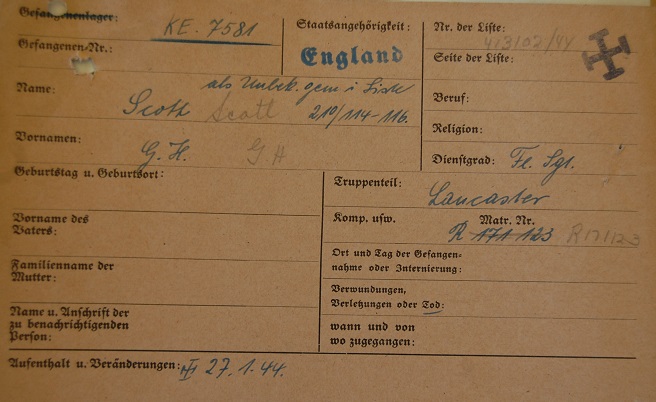 Gefangenenlager: KE. 7581
Gefangenen-Nr.:
Staatsangehörigkeit:
England
Nr. der Liste: 413102/44
Seite der Liste:
Name: als Unbek. gem. i Liste
Scoth Scott 210/114-116.
Beruf:
Religion:
Vornamen: G. H. G. H
Dienstgrad: Fl. Sgt.
Geburtstag u. Geburtsort:
Truppenteil: Lancaster
Vorname des
Vaters:
Komp. usw. Matr. Nr.
R 171 123 R171123
Familienname der
Mutter:
Ort und Tag der Gefangen=
nahme oder Internierung:
Verwundungen,
Verletzungen oder Tod:
Name u. Anschrift der
zu benachrichtigenden
Person:
wann und von
wo zugegangen:
Aufenthalt u. Veränderungen: 27. 1. 44.